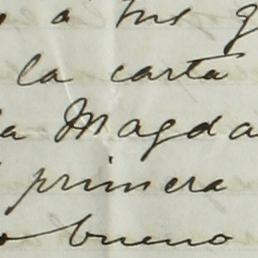 a
la carta
Magda
primera
bueno